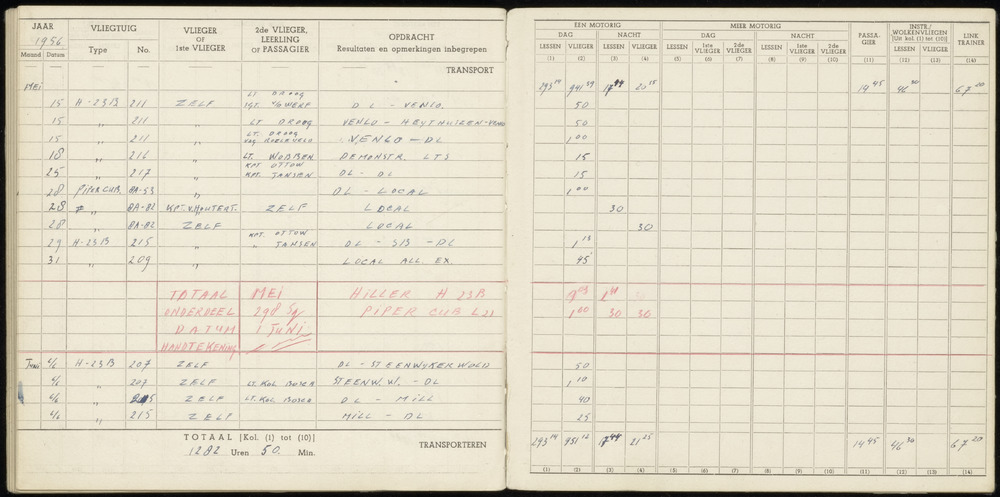 JAAR VLIEGTUIG VLIEGER OF 1ste VLIEGER 2de VLIEGER, LEERLING OF PASSAGIER OPDRACHT Resultaten en opmerkingen inbegrepen
1956
Maand Datum Type No.
TRANSPORT
MEI
LT DROOG
15 H-23B 211 ZELF SGT. v/d WERF DL - VENLO.
15 " 211 " LT DROOG VENLO - HEYTHUIZEN-VENLO
LT. DROOG
15 " 211 " VENLO - DL
18 " 216 " LT. WOBBEN DEMONSTR. LTS
KPT OTTOW
25 " 217 " KPT. JANSEN DL - DL
28 PIPER CUB. 8A-53 " DL - LOCAL
28 " 8A-82 KPT. V. HOUTERT. ZELF LOCAL
28 " 8A-82 ZELF LOCAL
KPT. OTTOW
29 H-23B 215 " " JANSEN DL - SB - DL
31 " 209 " LOCAL ALL. EX.
TOTAAL MEI HILLER H 23B
ONDERDEEL 298 Sq PIPER CUB L21
DATUM 1 JUNI
HANDTEKENING
JUNI 4/6 H-23B 207 ZELF DL - STEENWYKERWOLD
4/6 " 207 ZELF LT. KOL BOSCH STEENW.W. - DL
4/6 " 215 ZELF LT. KOL BOSCH DL - MILL
4/6 " 215 ZELF MILL - DL
TOTAAL [Kol. (1) tot (10)]
1282 Uren 50 Min.
TRANSPORTEREN
EEN MOTORIG MEER MOTORIG PASSAGIER INSTR./WOLKENVLIEGEN [Uit kol. (1) tot (10)] LINK TRAINER
DAG NACHT DAG NACHT
LESSEN VLIEGER LESSEN VLIEGER LESSEN 1ste VLIEGER 2de VLIEGER LESSEN 1ste VLIEGER 2de VLIEGER LESSEN VLIEGER
(1) (2) (3) (4) (5) (6) (7) (8) (9) (10) (11) (12) (13) (14)
293 14 941 39 17 44 20 25 14 45 46 30 67 20
50
50
1 00
15
15
1 00
30
30
1 15
45
1 00 30 30
50
1 10
40
25
293 14 951 12 17 44 21 25 14 45 46 30 67 20
(1) (2) (3) (4) (5) (6) (7) (8) (9) (10) (11) (12) (13) (14)